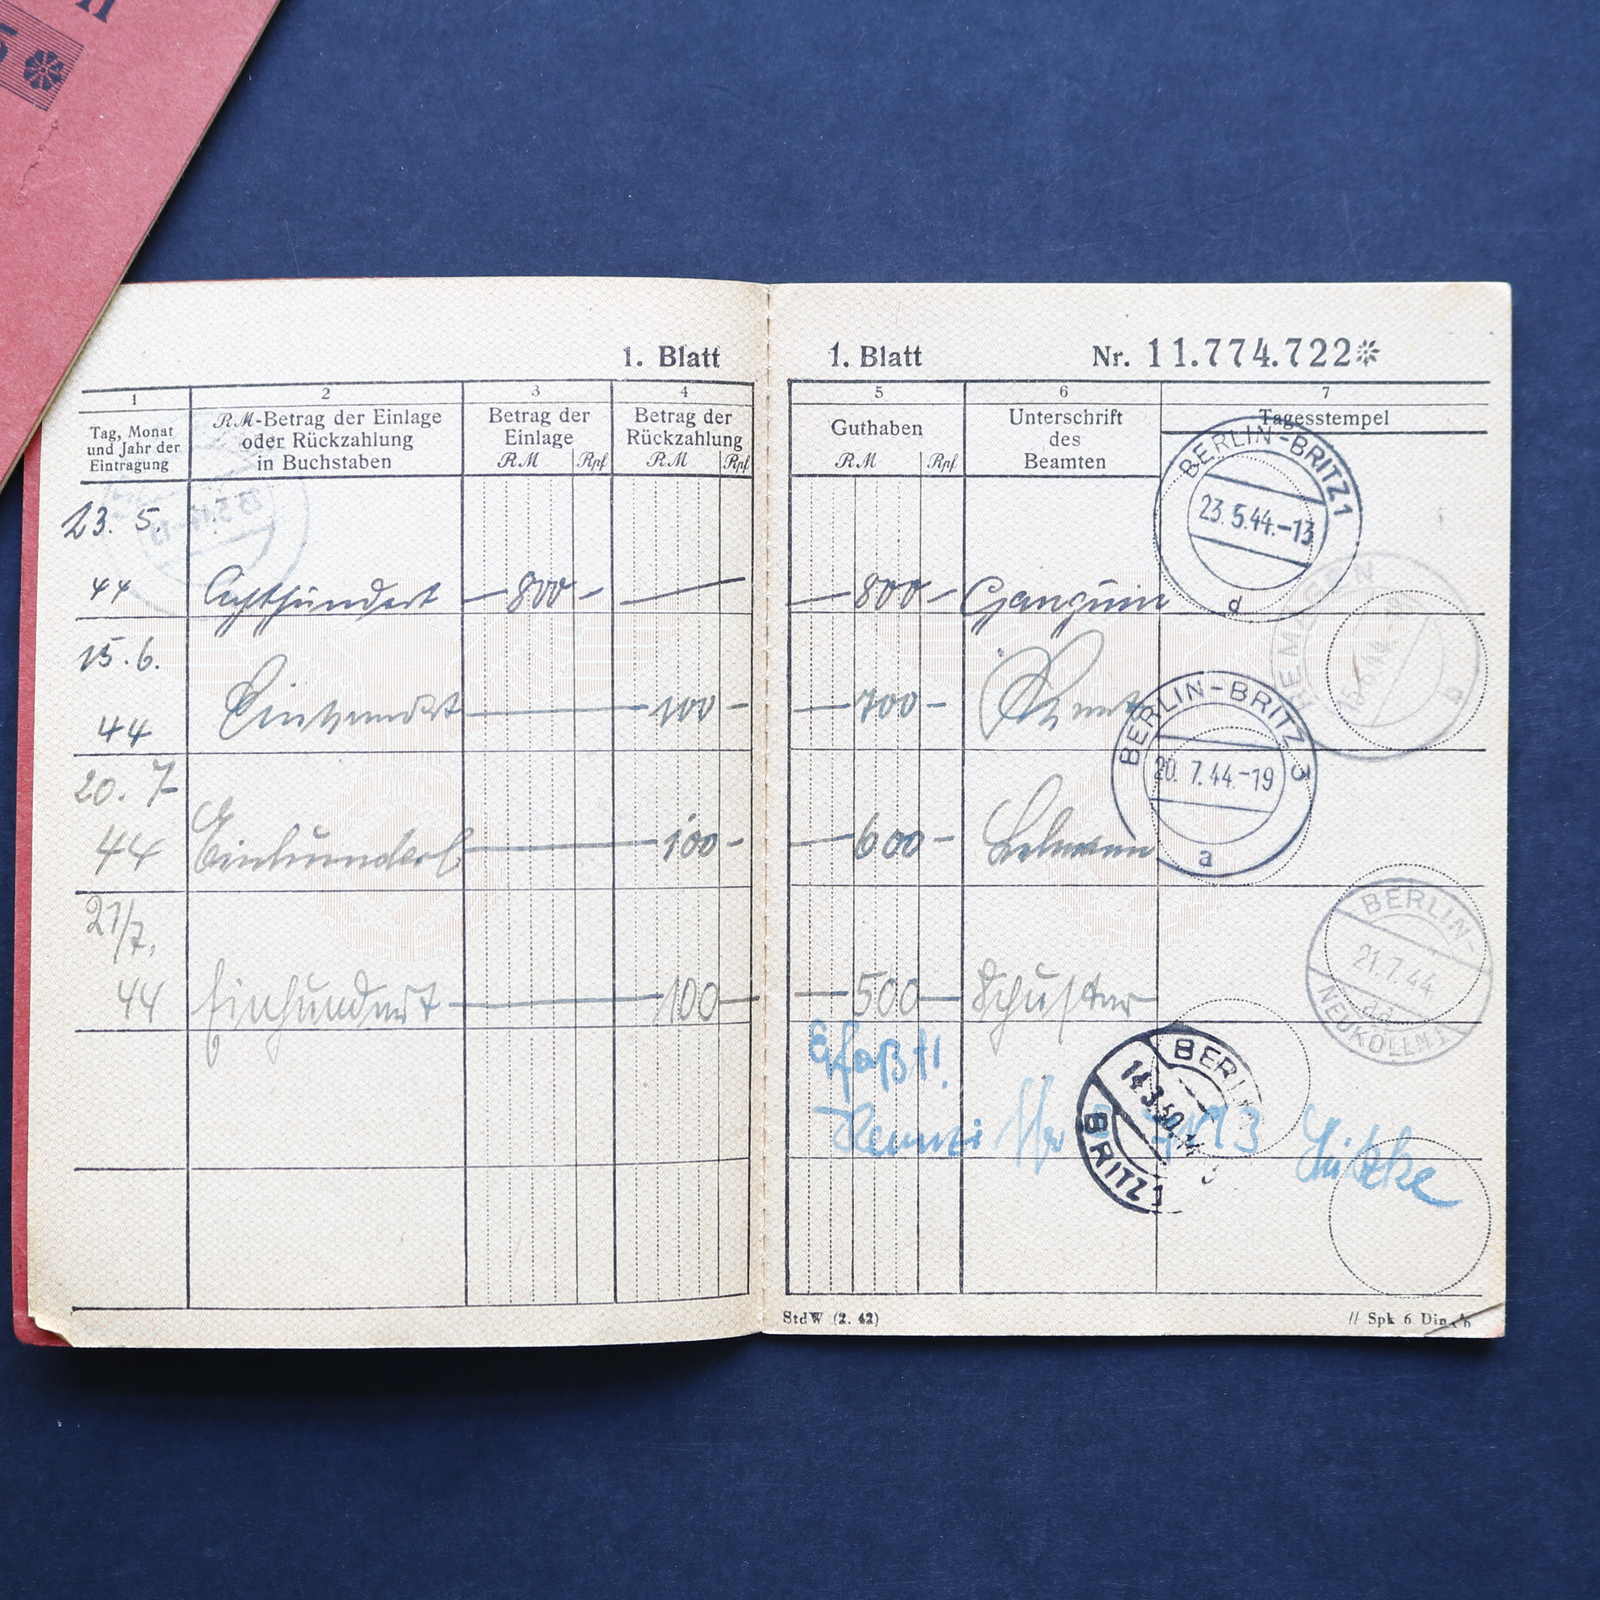 1. Blatt
1. Blatt Nr. 11.774.722
1 2 3 4 5 6 7
Tag, Monat und Jahr der Eintragung
RM-Betrag der Einlage oder Rückzahlung in Buchstaben
Betrag der Einlage
RM Rpf
Betrag der Rückzahlung
RM Rpf
Guthaben
RM Rpf
Unterschrift des Beamten
Tagesstempel
23. 5. 44 Achthundert — 800 — — — 800 —
BERLIN-BRITZ 1
23.5.44.-13
15. 6. 44 Einhundert — 100 — — 700 —
20. 7. 44 Einhundert — 100 — — 600 — Lehmann
BERLIN-BRITZ 3
20. 7.44.-19
a
21/7. 44 Einhundert — 100 — — 500 — Schuster
BERLIN-
21.7.44
aa
NEUKÖLLN 1
Erfaßt!
BERLIN
14.3.50
BRITZ 1
StdW (2. 42)
// Spk 6 Din